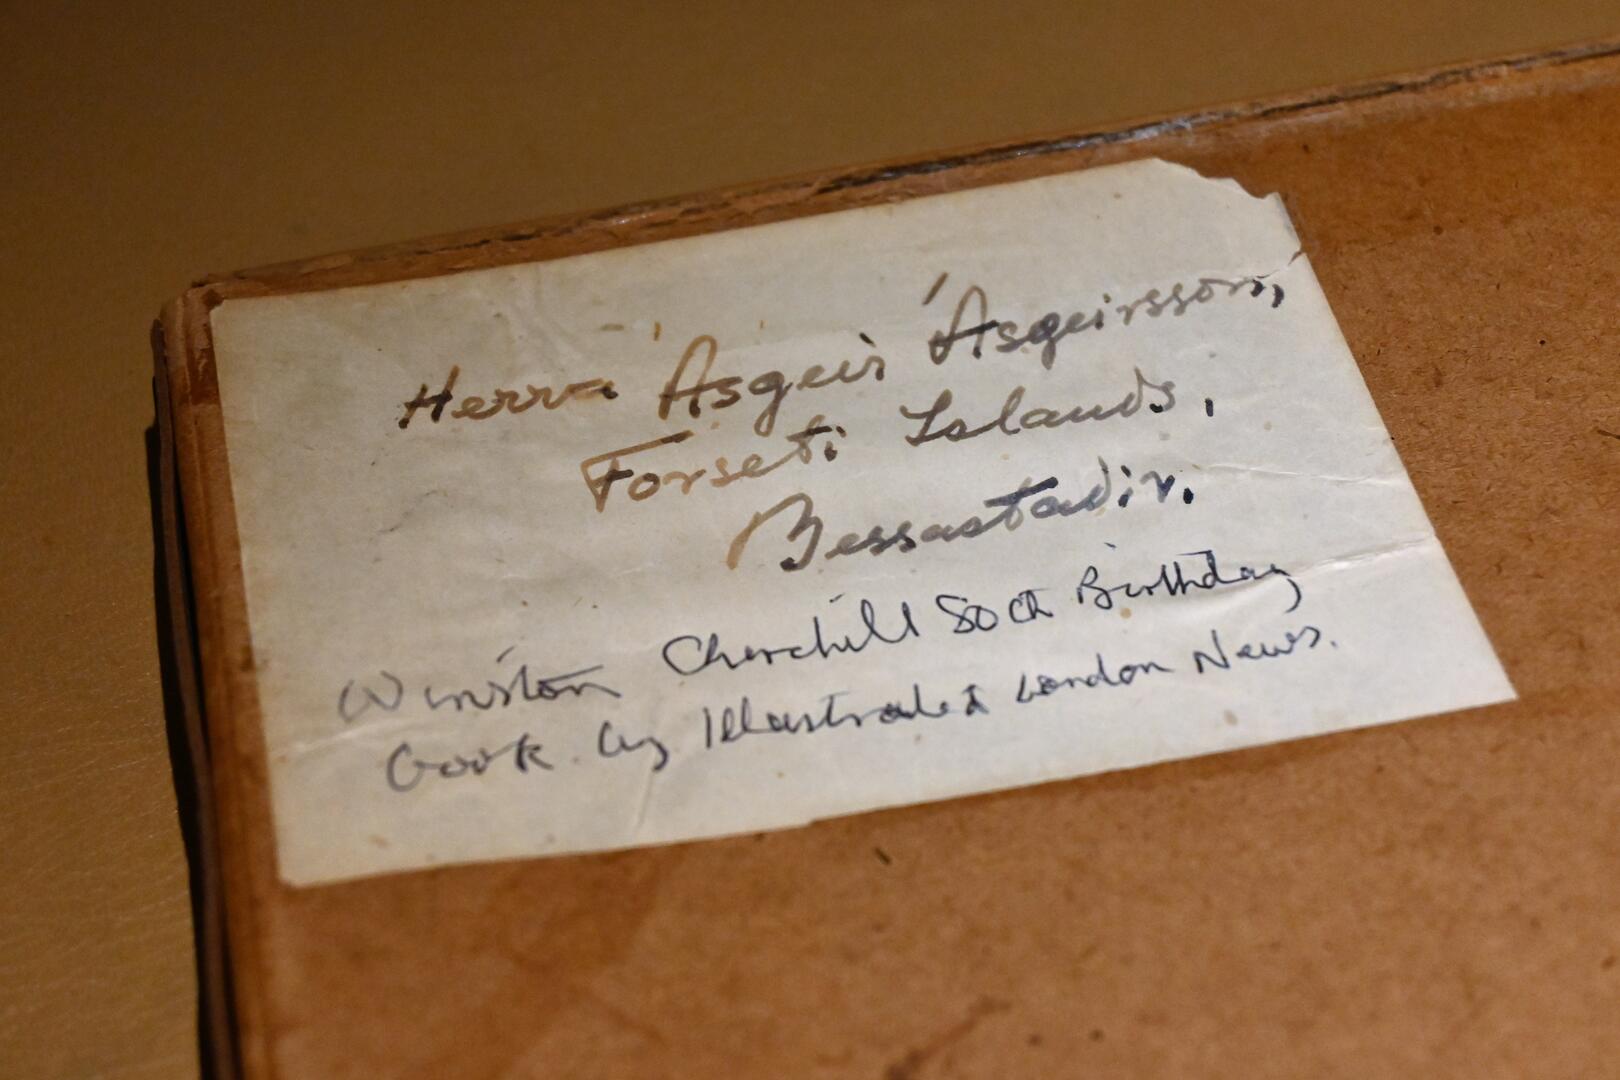 Herra Ásgeir Ásgeirsson,
Forseti Islands,
Bessastadir.
Winston Churchill 80th Birthday
book by Illustrated London News.